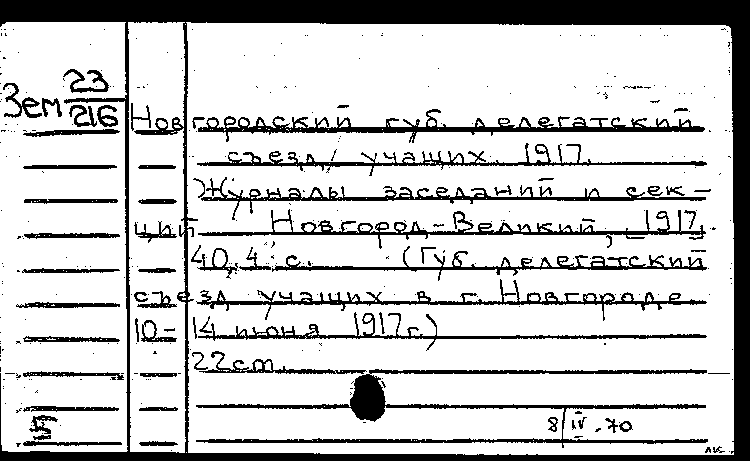 Зем 23/216
Новгородский губ. делегатский
съезд учащих. 1917.
Журналы заседаний и сек-
ций. Новгород-Великий, 1917.
40,4 с. (Губ. делегатский
съезд учащих в г. Новгороде
10-14 июня 1917г.)
22 cm.
8/IV-70